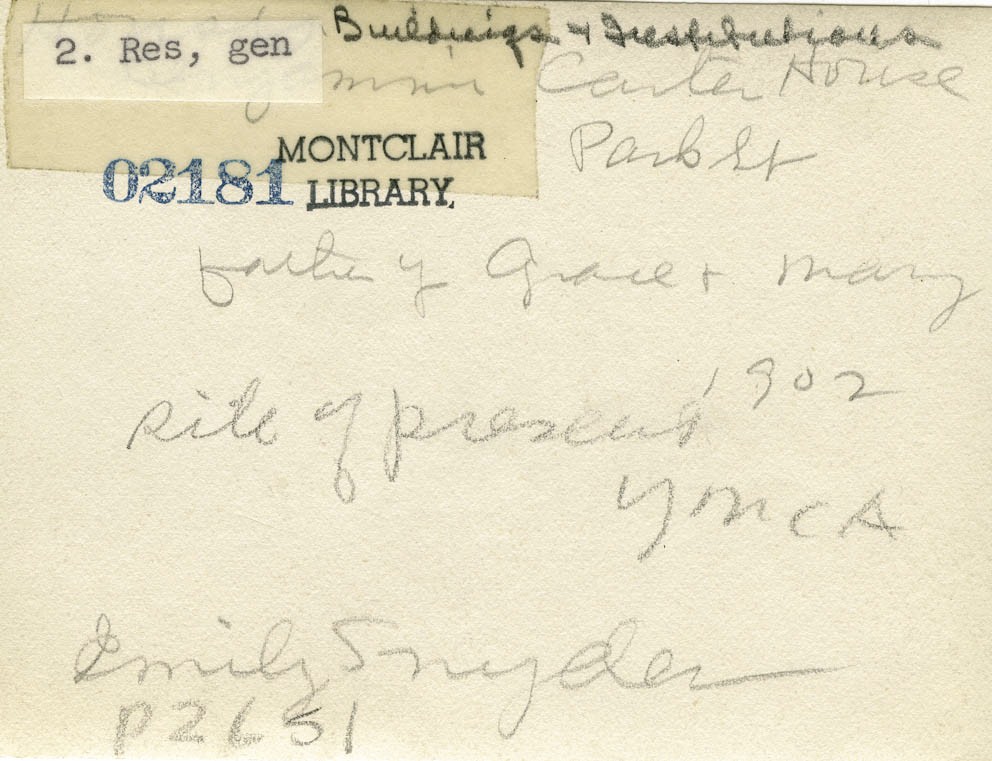 Buildings & Institutions
2. Res, gen
Carter House
Park St
MONTCLAIR
02181 LIBRARY,
father of Grace & Mary
1902
site of present
YMCA
Emily Snyder
P2651